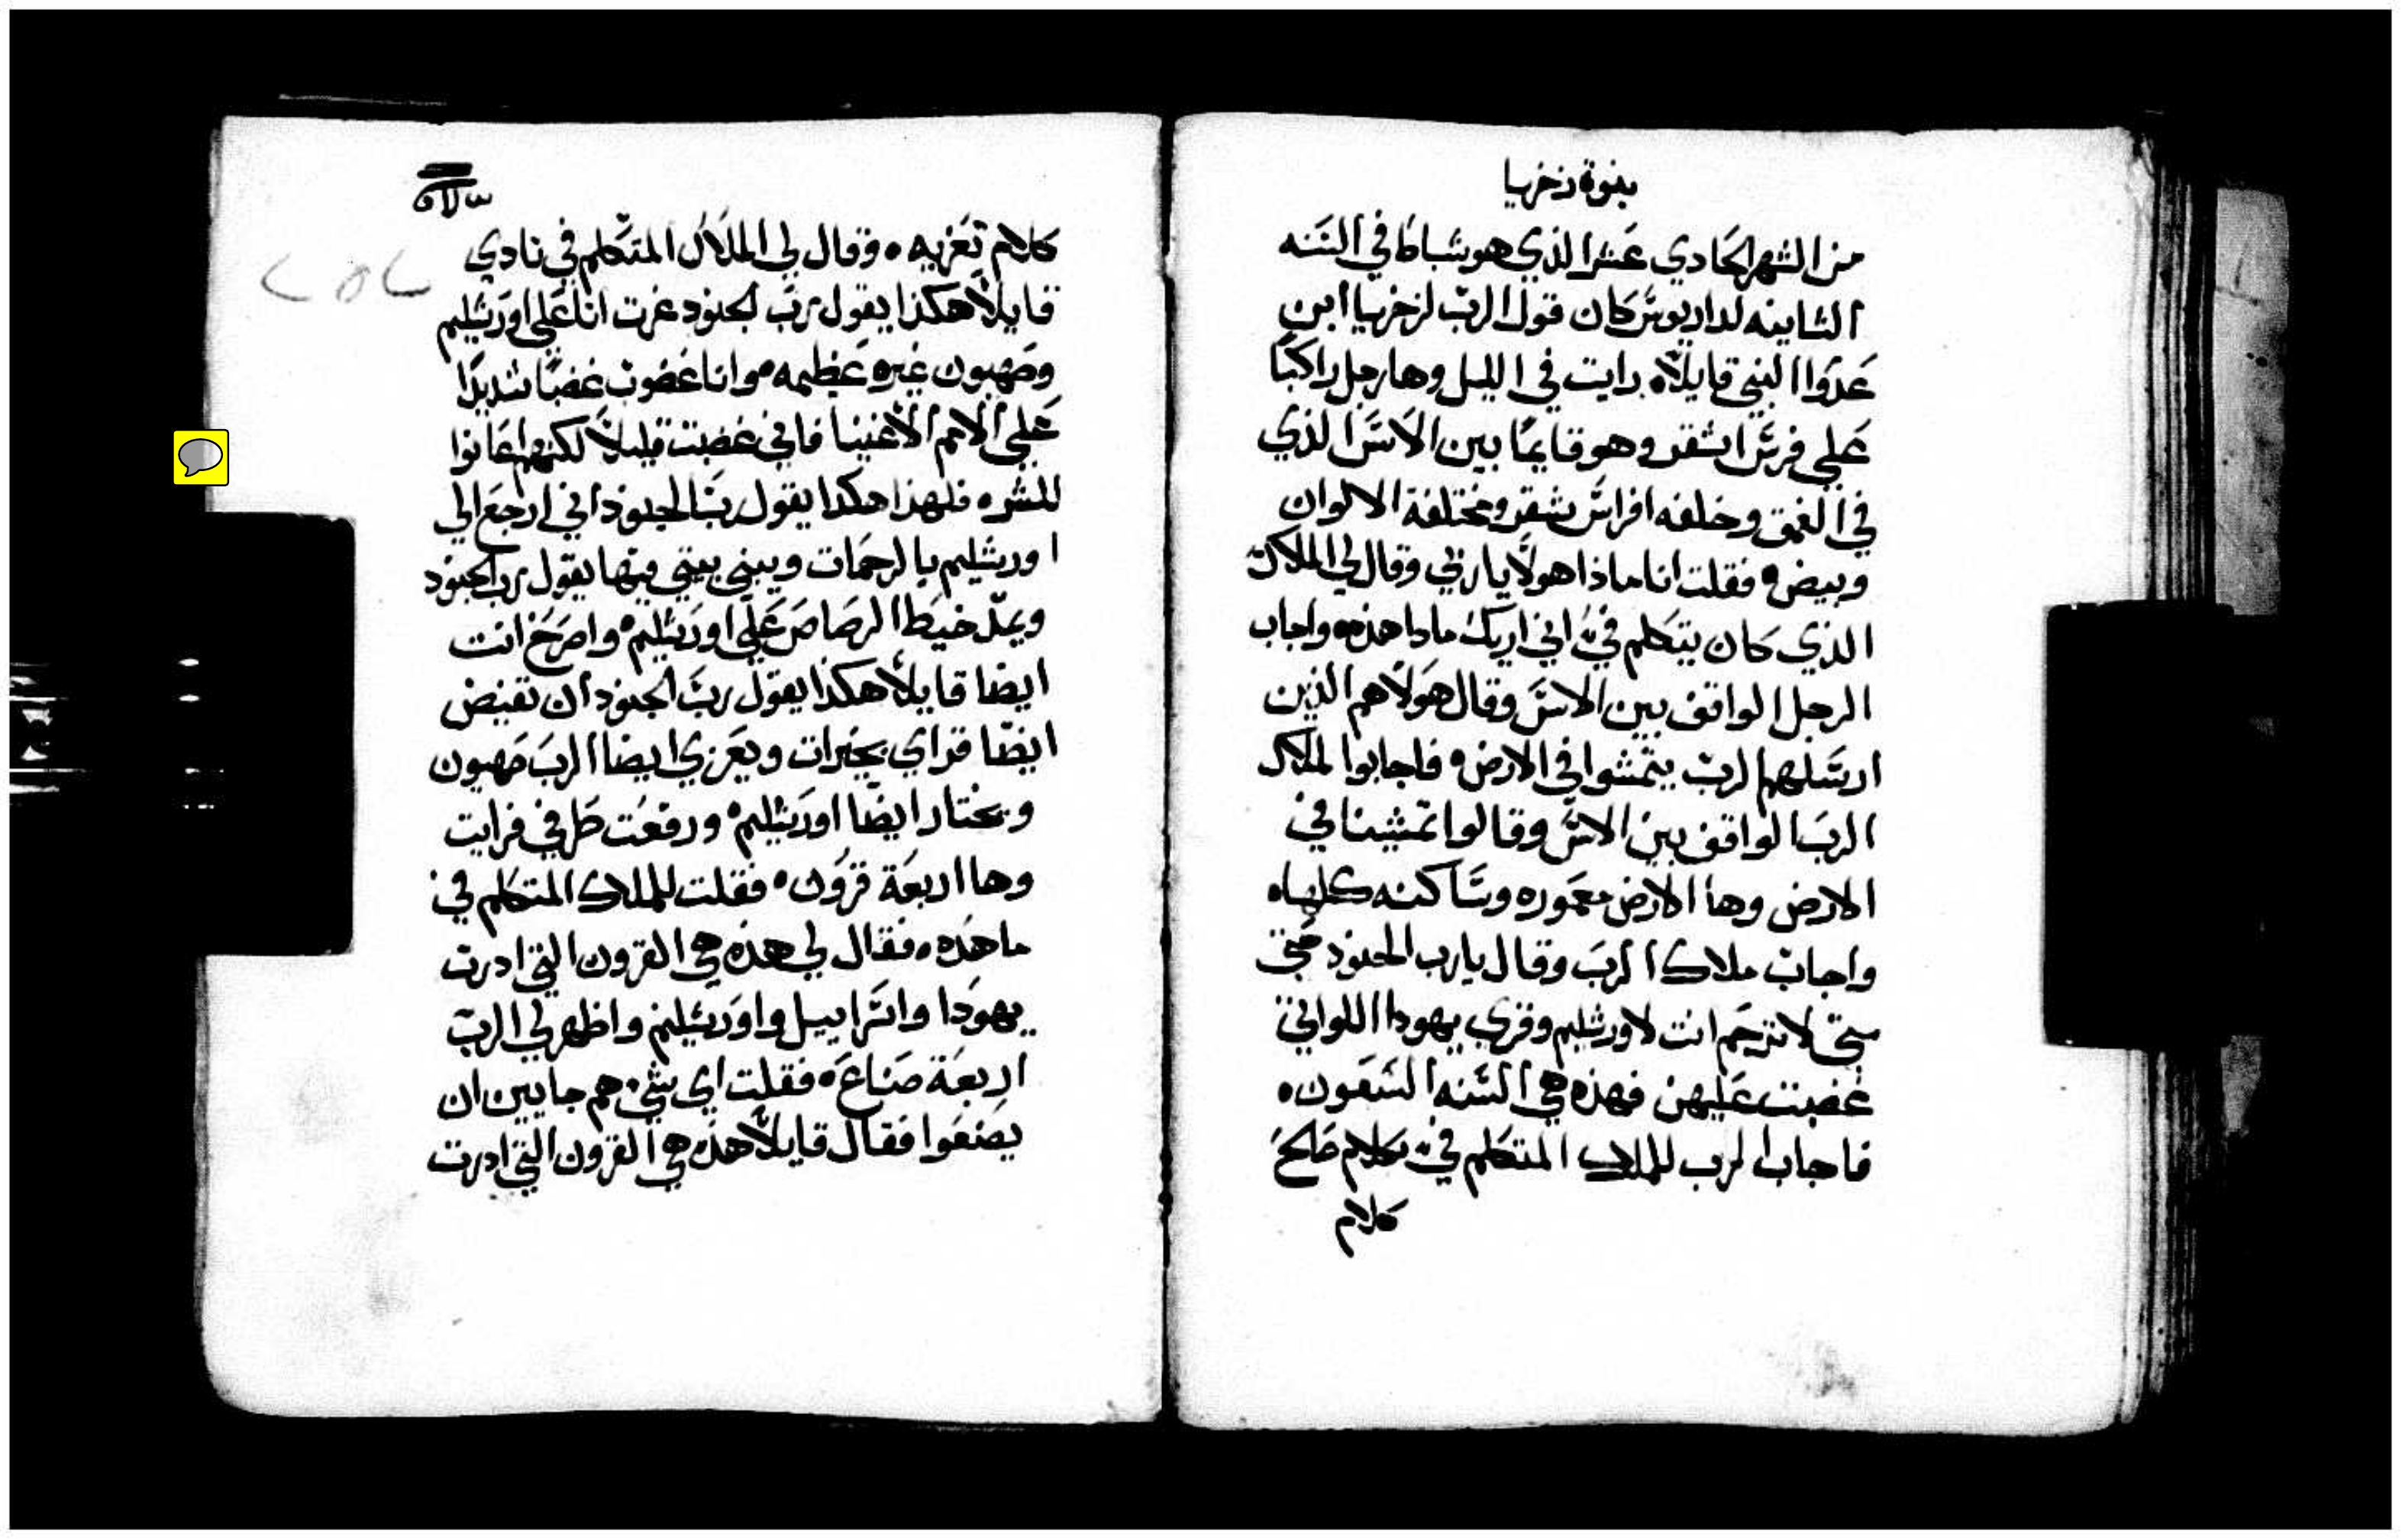 بنوة زخريا
من الشهر الحادي عشر الذي هو شباط في السنه
الثانيه لداريوس كان قول الرب لزخريا ابن
عدوا النبي قايلا ه رايت في الليل وها رجل راكبًا
علي فرس اشقر وهو قايمًا بين الاس الذي
في الغمق وخلفه افراس شقر ومختلفة الالوان
وبيض ه فقلت انا ماذا هولا يا ربي وقال لي الملاك
الذي كان يتكلم فيَّ اني اريك ماذا هذه ه واجاب
الرجل الواقف بين الاس وقال هولا هم الذين
ارسلهم الرب يتمشوا في الارض ه فاجابوا لملاك
الرب الواقف بين الاس وقالوا تمشينا في
الارض وها الارض معموره وساكنه كلها ه
واجاب ملاك الرب وقال يا رب الجنود حتي
متي لا ترحم انت لاورشليم وقري يهودا اللواتي
غضبت عليهن فهذه هي السنه السبعون ه
فاجاب الرب للملاك المتكلم فيَّ بكلام صالح
كلام
كلام تعزيه ه وقال لي الملاك المتكلم في نادي
قايلاً هكذا يقول رب الجنود غرت انا علي اورشليم
وصهيون غيره عظيمه ه وانا غضوب غضبًا شديدًا
علي الامم الاغنيا فاني غضبت قليلاً لكنهم اعانوا
للشر ه فلهذا هكذا يقول رب الجنود اني ارجع الي
اورشليم بالرحمات ويبني بيتي فيها يقول رب الجنود
ويمد خيط الرصاص علي اورشليم ه واصرخ انت
ايضا قايلاً هكذا يقول رب الجنود ان تفيض
ايضًا قراي بخيرات ويعزي ايضا الرب صهيون
ويختار ايضًا اورشليم ه ورفعت طرفي فرايت
وها اربعة قرون ه فقلت للملاك المتكلم في
ما هذه ه فقال لي هذه هي القرون التي ادرت
يهودا واسراييل واورشليم واظهر لي الرب
اربعة صناع ه فقلت اي شي هم جايين ان
يصنعوا فقال قايلاً هذه هي القرون التي ادرت